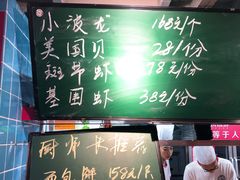 小波龙 168元/个
美国贝 28/份
斑节虾 78元/份
基围虾 38/份
厨师长推荐
面包蟹 158元/只
等于人